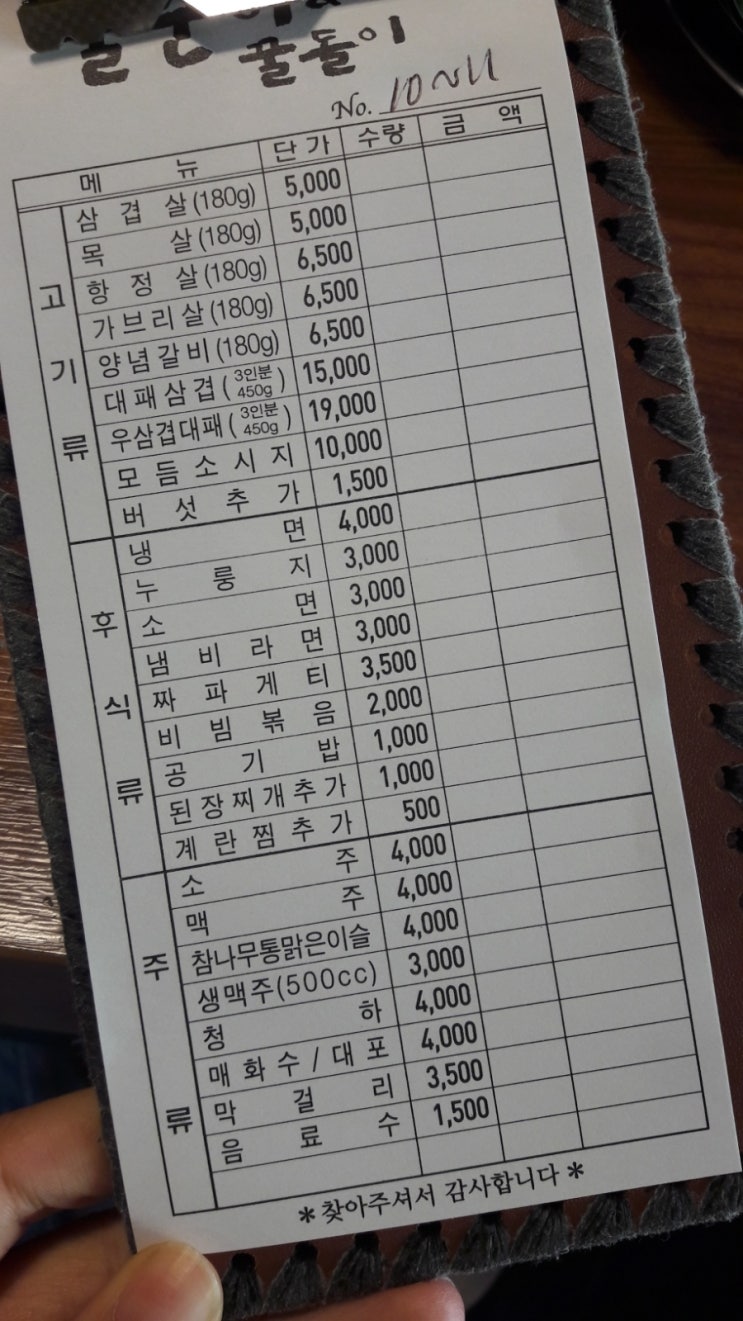 꿀돌이
No. 10~11
메뉴 단가 수량 금액
고기류
삼겹살(180g) 5,000
목살(180g) 5,000
항정살(180g) 6,500
가브리살(180g) 6,500
양념갈비(180g) 6,500
대패삼겹(3인분 450g) 15,000
우삼겹대패(3인분 450g) 19,000
모듬소시지 10,000
버섯추가 1,500
후식류
냉면 4,000
누룽지 3,000
소면 3,000
냄비라면 3,000
짜파게티 3,500
비빔볶음 2,000
공기밥 1,000
된장찌개추가 1,000
계란찜추가 500
주류
소주 4,000
맥주 4,000
참나무통맑은이슬 4,000
생맥주(500cc) 3,000
청하 4,000
매화수/대포 4,000
막걸리 3,500
음료수 1,500
*찾아주셔서 감사합니다*